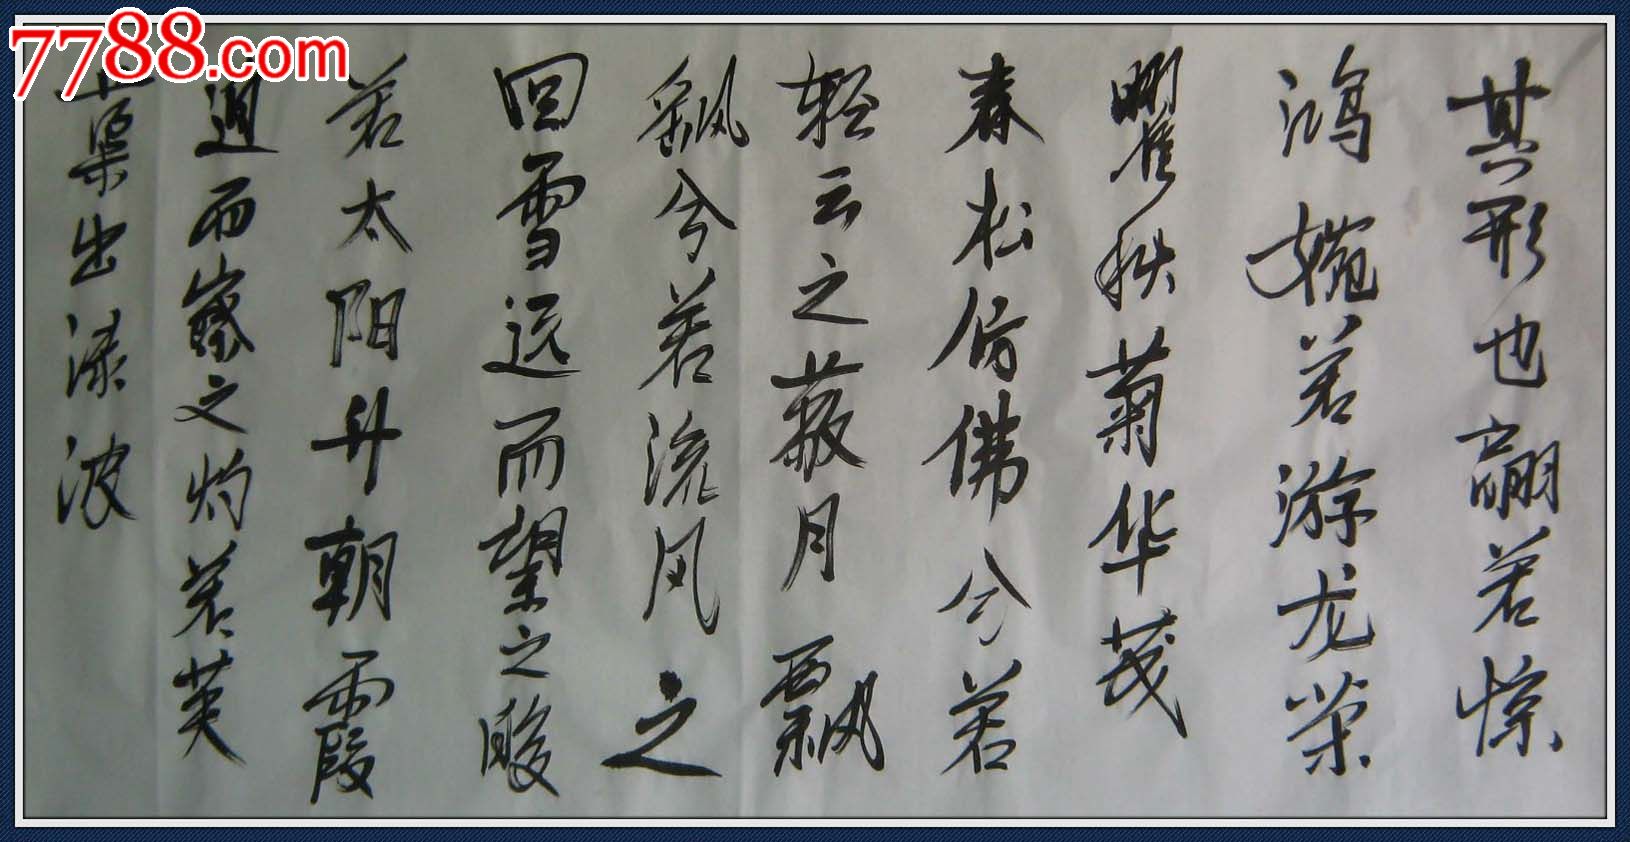 7788.com
其形也翩若惊
鸿婉若游龙荣
曜秋菊华茂
春松仿佛兮若
轻云之蔽月飘
飖兮若流风之
回雪远而望之皎
若太阳升朝霞
而之灼若芙
蕖出渌波